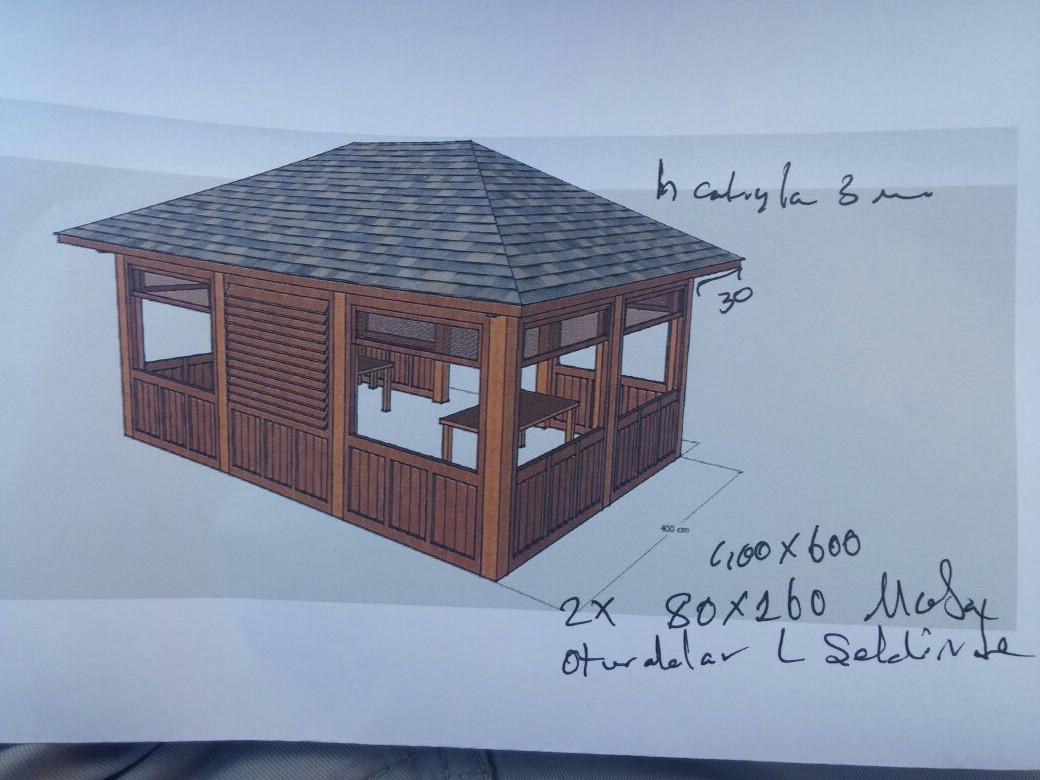 h catıyla 3 m
30
400 cm
400x600
2x 80x160 Masa
Oturaklar L Şeklinde